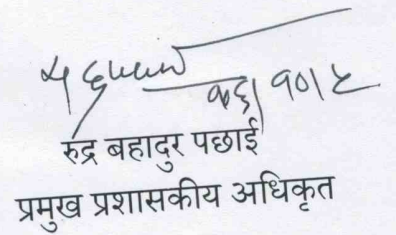 रुद्र बहादुर पछाई
प्रमुख प्रशासकीय अधिकृत